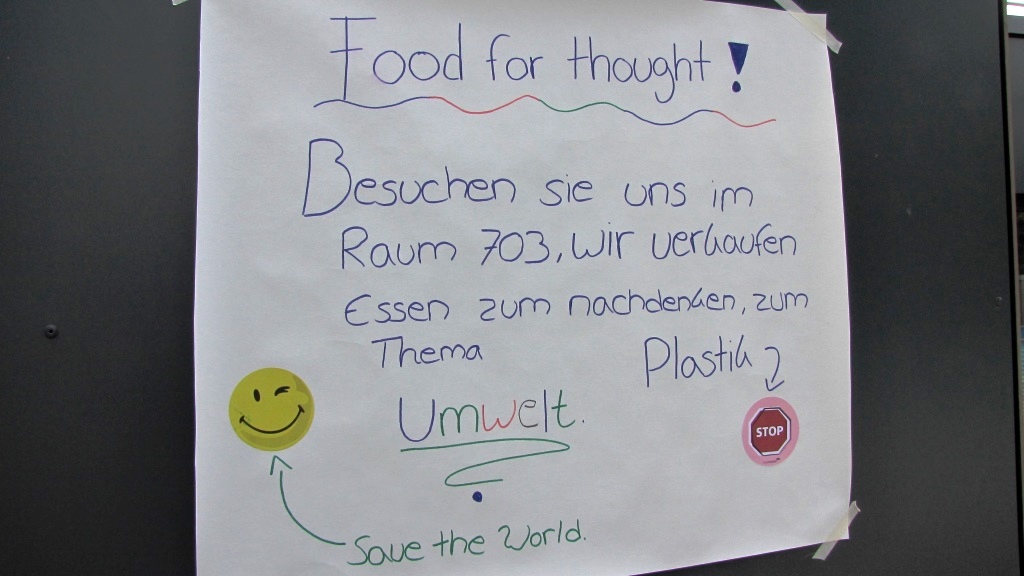 Food for thought!
Besuchen sie uns im
Raum 703, wir verkaufen
Essen zum nachdenken, zum
Thema
Plastik
Umwelt.
STOP
Save the World.